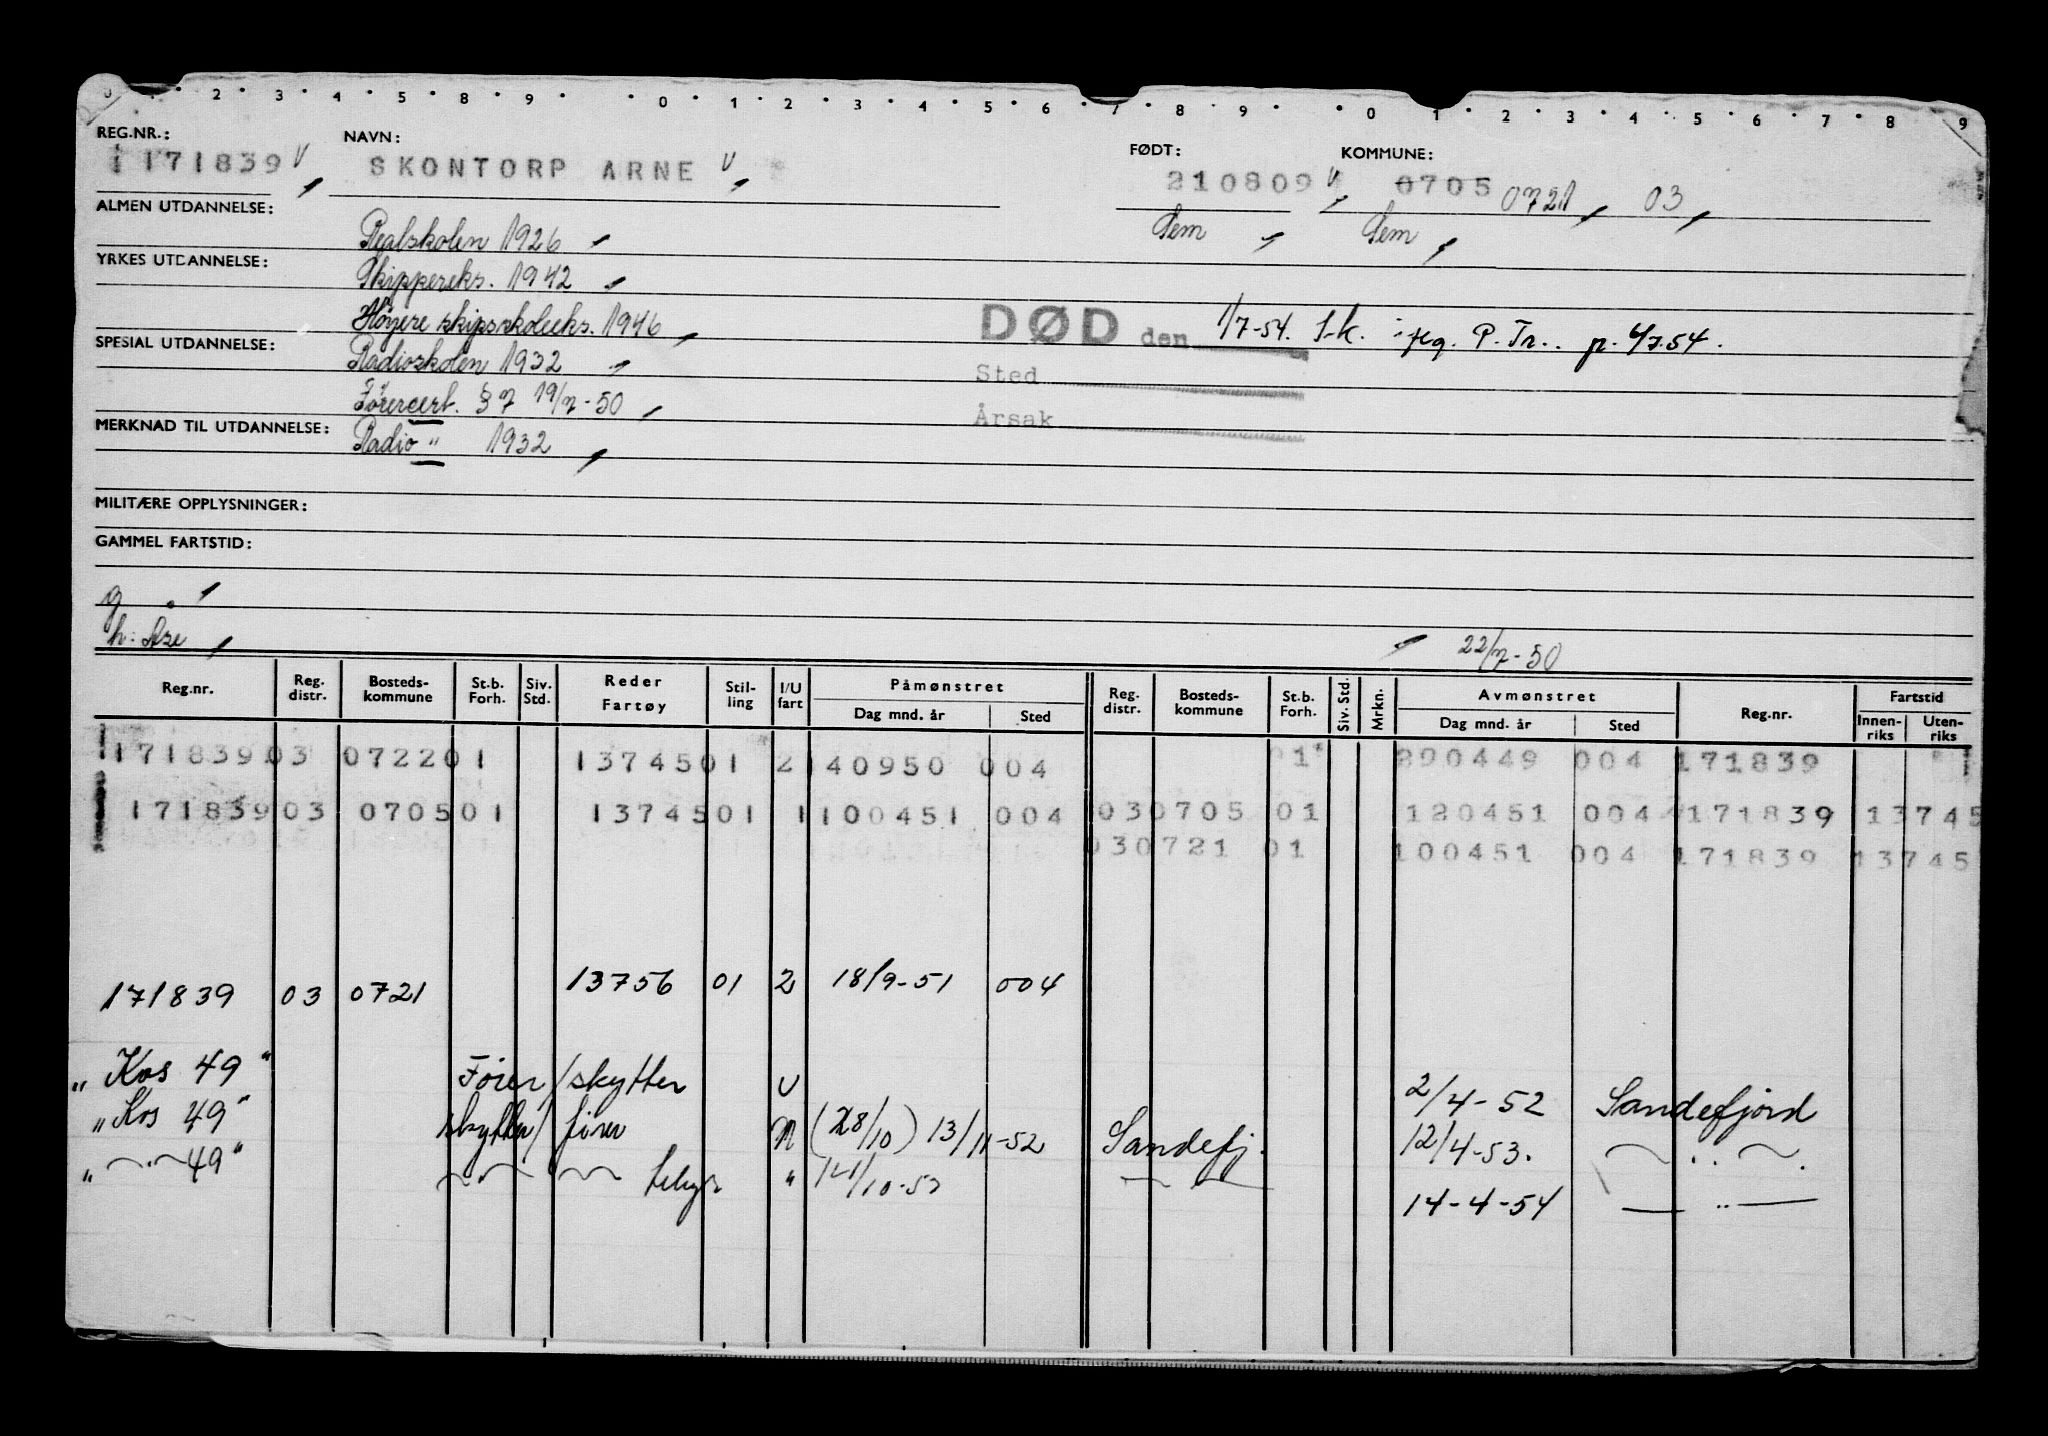 0 · 2 · 3 · 4 · 5 · 8 · 9 · · 0 · 1 · 2 · 3 · 4 · 5 · 6 · 7 · 8 · 9 · · 0 · 1 · 2 · 3 · 4 · 5 · 6 · 7 · 8 · 9
REG.NR.: NAVN: FØDT: KOMMUNE:
171839 SKONTORP ARNE 210809 0705 0721 03
ALMEN UTDANNELSE: Sem Sem
Realskolen 1926
YRKES UTDANNELSE:
Skippereks. 1942
Høyere skipsskoleeks. 1946 DØD den 1/7-54.
SPESIAL UTDANNELSE:
Radioskolen 1932 Sted
Førercert. § 7 19/7-50 Årsak
MERKNAD TIL UTDANNELSE:
Radio " 1932
MILITÆRE OPPLYSNINGER:
GAMMEL FARTSTID:
g
h: Aze 22/7-50
Reg.nr. Reg. distr. Bosteds-kommune St.b. Forh. Siv. Std. Reder Fartøy Stil-ling I/U fart Påmønstret Dag mnd. år Sted Reg. distr. Bosteds-kommune St.b. Forh. Siv. Std. Mrkn. Avmønstret Dag mnd. år Sted Reg.nr. Fartstid Innen-riks Uten-riks
171839 03 0722 01 13745 01 2 140950 004 01 290449 004 171839
171839 03 0705 01 13745 01 1 100451 004 03 0705 01 120451 004 171839 13745
03 0721 01 100451 004 171839 13745
171839 03 0721 13756 01 2 18/9-51 004
" Kos 49 " Fører/skytter U 2/4-52 Sandefjord
" Kos 49 " skytter/fører (28/10) 13/11-52 Sandefj. 12/4-53. — " —
" — " — 49 " — " — " 14/10-53 — " — 14-4-54 — " —